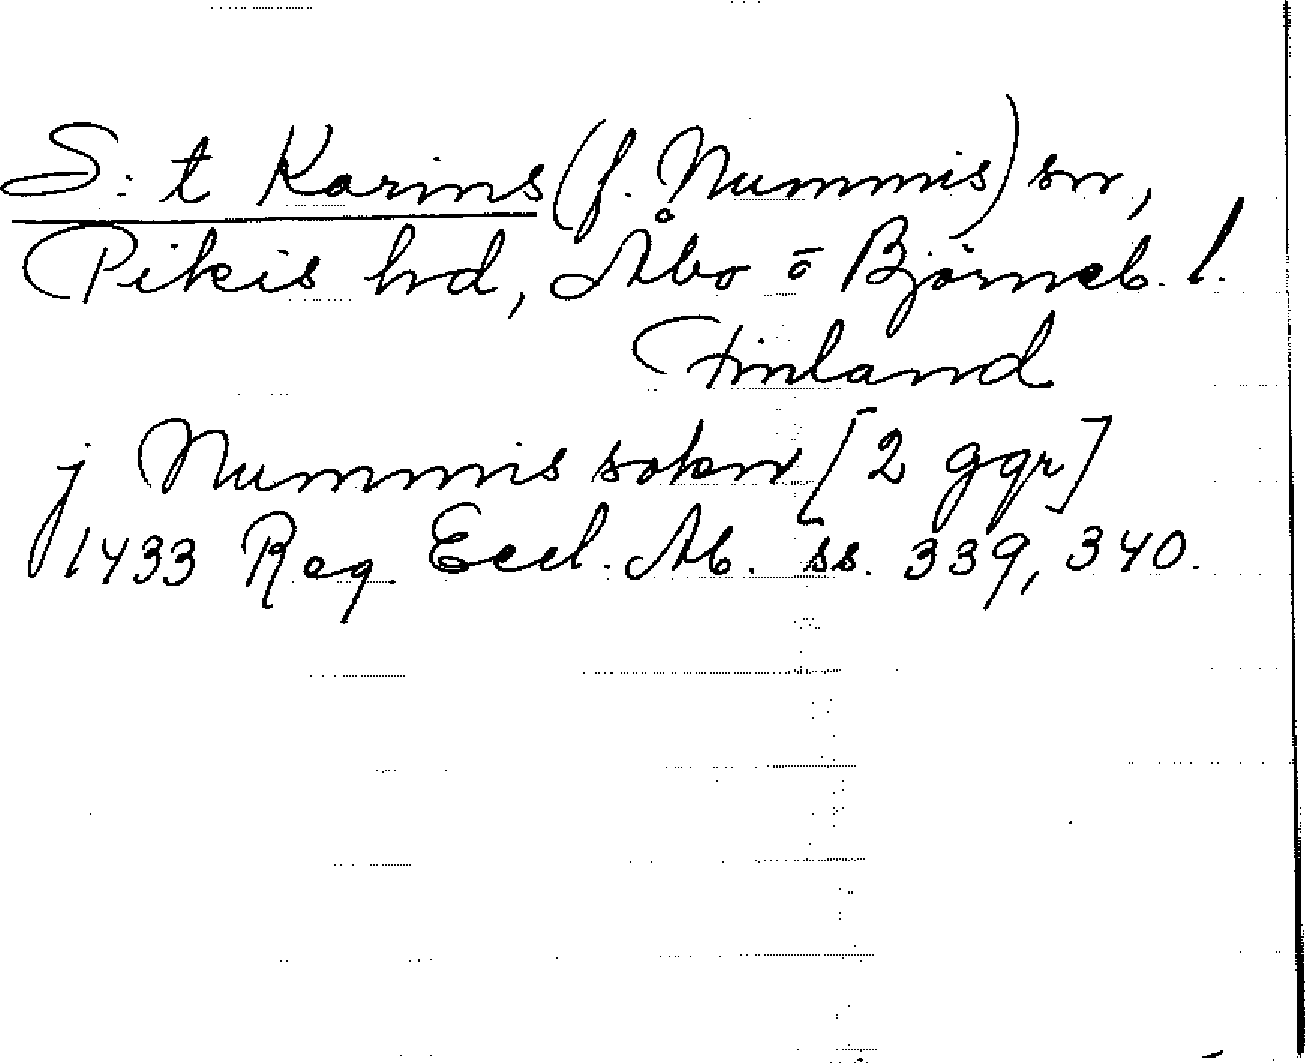 S:t Karins (f. Nummis) sn,
Pikis hd, Åbo o Björneb. l.
Finland
j Nummis sokn [2 ggr]
1433 Reg. Eccl. Ab. ss. 339, 340.